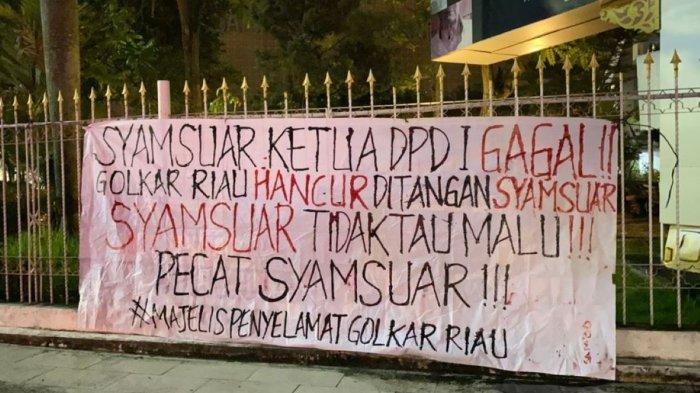 SYAMSUAR KETUA DPD I GAGAL!!
GOLKAR RIAU HANCUR DITANGAN SYAMSUAR
SYAMSUAR TIDAK TAU MALU!!!
PECAT SYAMSUAR!!!
#MAJELIS PENYELAMAT GOLKAR RIAU